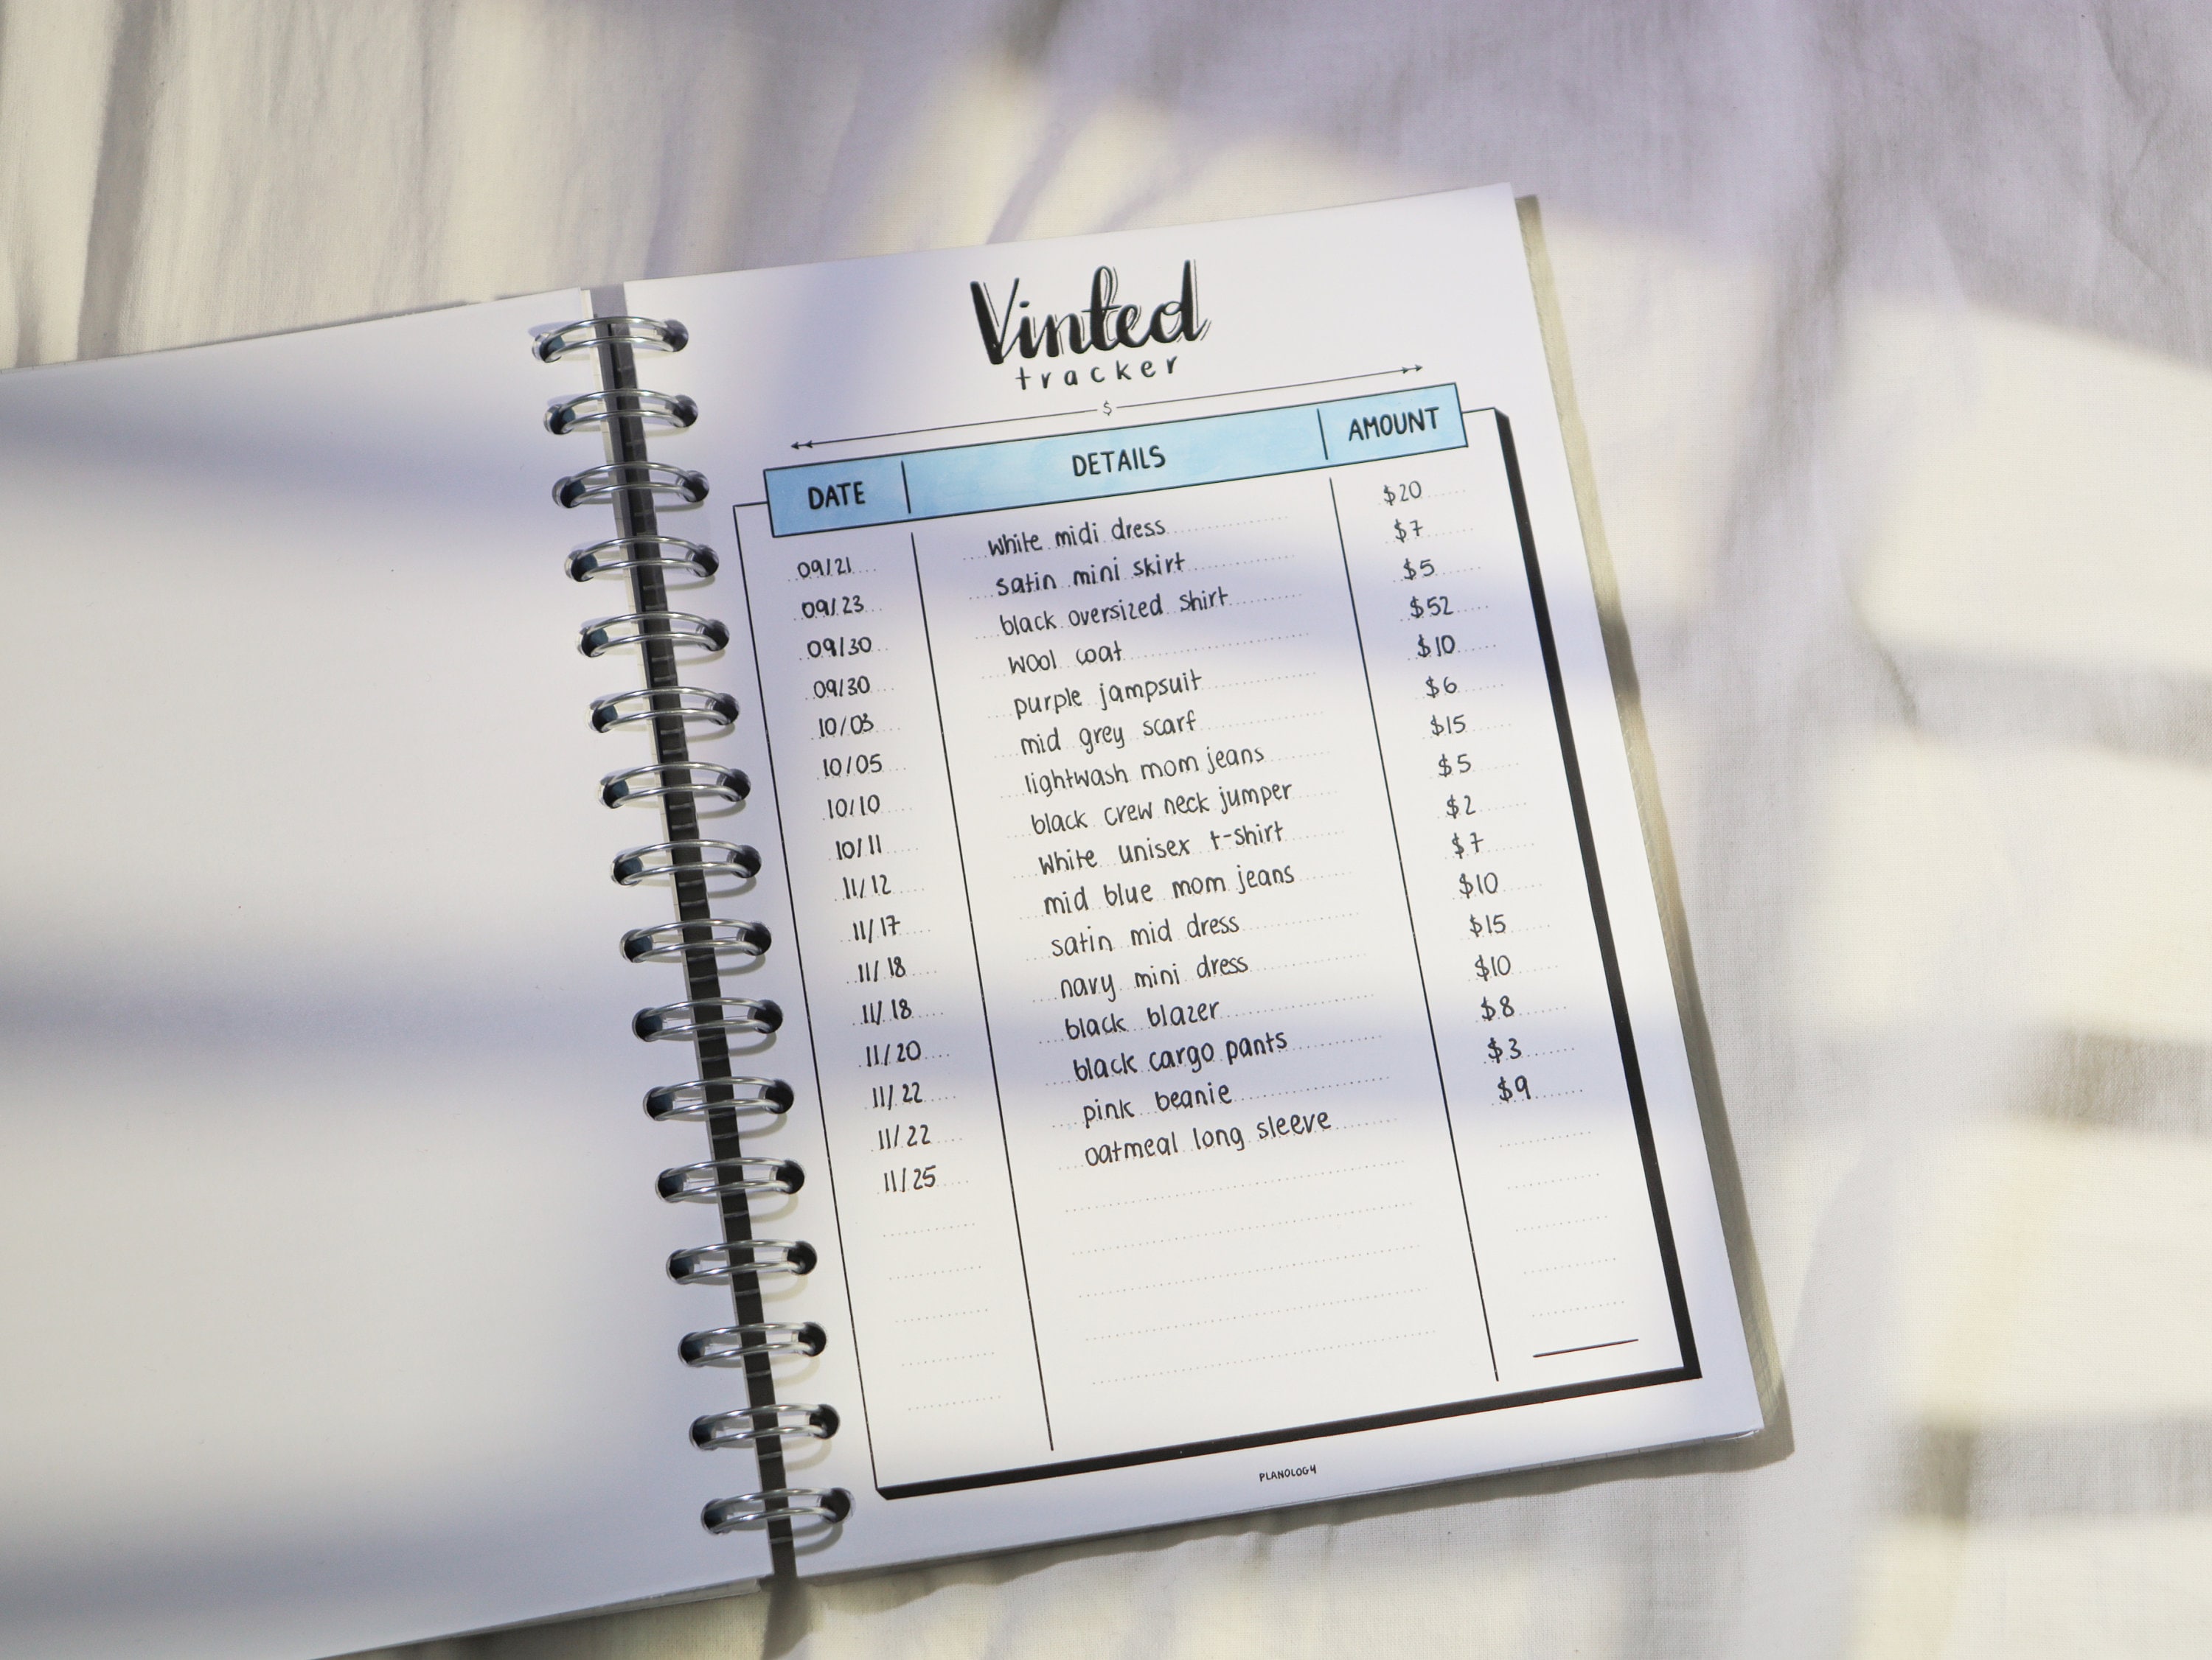 Vinted
tracker
$
DATE DETAILS AMOUNT
09/21 white midi dress $20
09/23 satin mini skirt $7
09/30 black oversized shirt $5
09/30 wool coat $52
10/03 purple jampsuit $10
10/05 mid grey scarf $6
10/10 lightwash mom jeans $15
10/11 black crew neck jumper $5
11/12 white unisex t-shirt $2
11/17 mid blue mom jeans $7
11/18 satin mid dress $10
11/18 navy mini dress $15
11/20 black blazer $10
11/22 black cargo pants $8
11/22 pink beanie $3
11/25 oatmeal long sleeve $9
PLANOLOGY